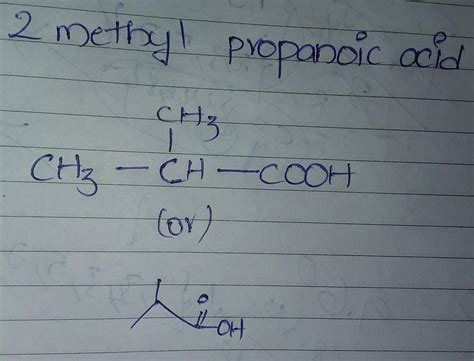 2 methyl propanoic acid
CH3
CH3 — CH — COOH
(or)
O
OH